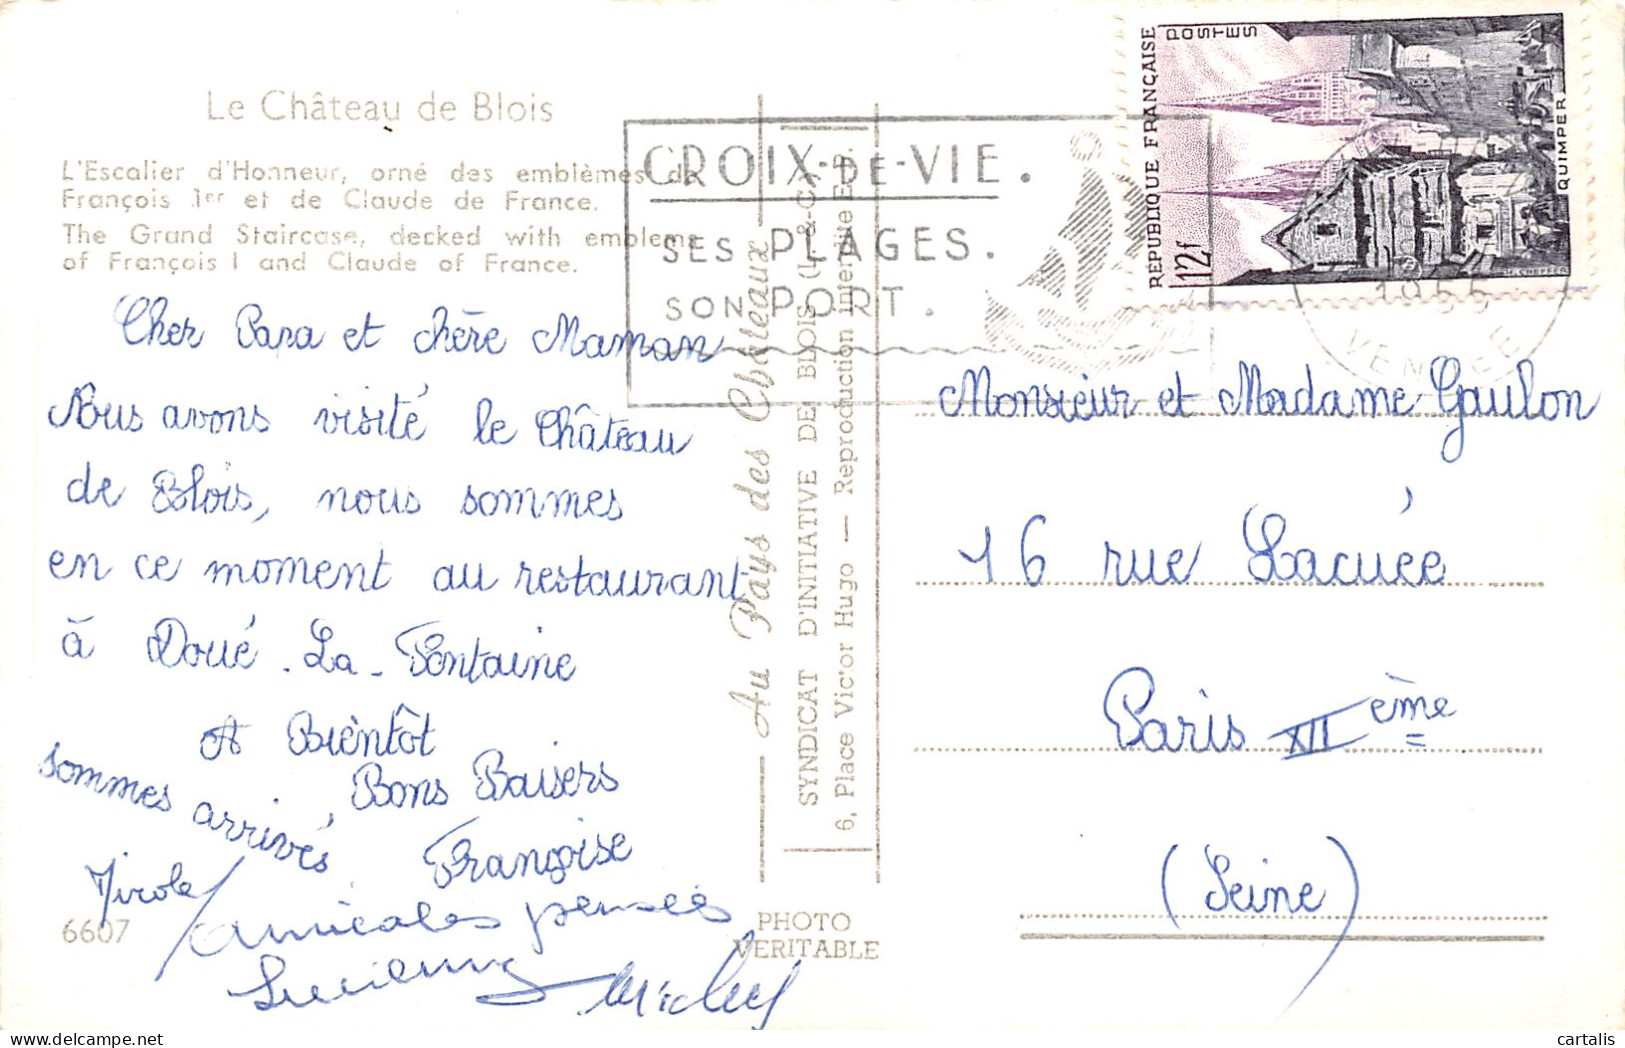 Le Château de Blois
L'Escalier d'Honneur, orné des emblèmes de
François 1er et de Claude de France.
The Grand Staircase, decked with emblems
of François I and Claude of France.
Cher Papa et chère Maman
Nous avons visité le Château
de Blois, nous sommes
en ce moment au restaurant
à Doué-La-Fontaine
A Bientôt
sommes arrivés
Bons Baisers
Françoise
Amicales pensées
Lucienne
Michel
6607
CROIX-DE-VIE.
SES PLAGES.
SON PORT.
Au Pays des Châteaux
SYNDICAT D'INITIATIVE DE BLOIS
6, Place Victor Hugo — Reproduction Interdite
PHOTO
VERITABLE
RÉPUBLIQUE FRANÇAISE
POSTES
12f
QUIMPER
1955
VENDEE
Monsieur et Madame Gaulon
16 rue Lacuée
Paris XIIème
(Seine)
cartalis